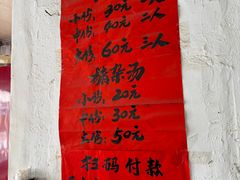 小份 30元 一人
中份 40元 二人
大份 60元 三人
猪杂汤
小份 20元
中份 30元
大份 50元
扫码付款